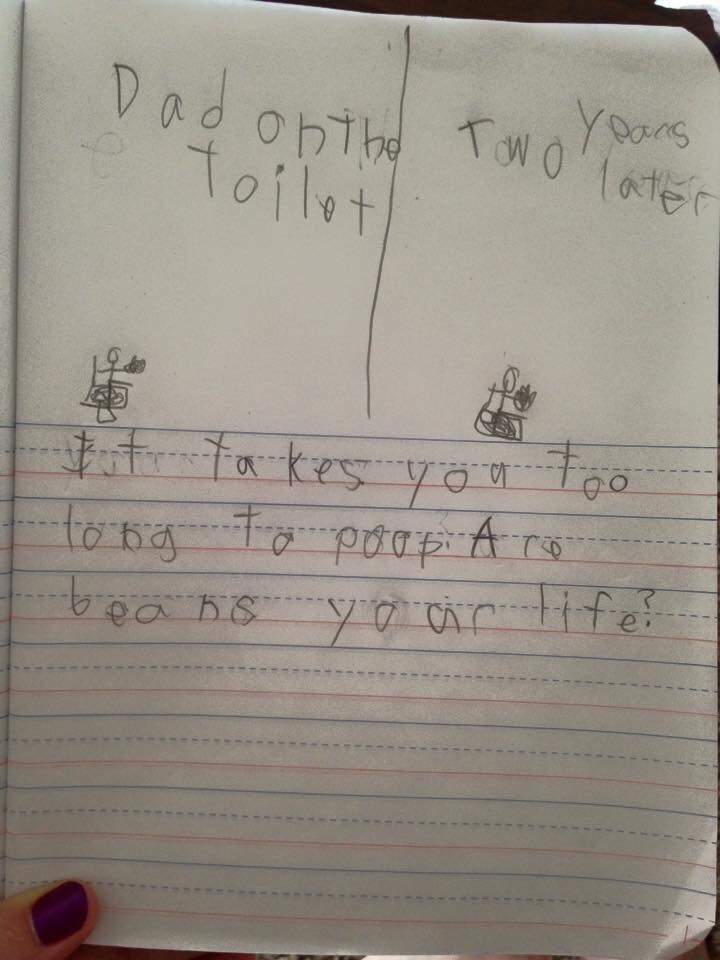 Dad on the
toilet
Two Years
later
It takes you too
long to poop. Are
beans your life?